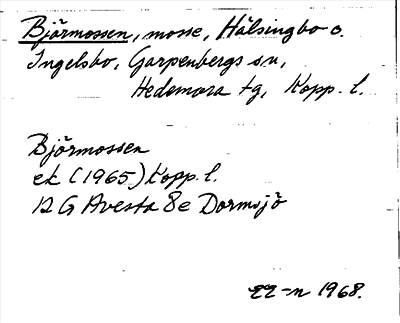 Björmossen, mosse, Hälsingbo o.
Ingelsbo, Garpenbergs sn,
Hedemora tg, Kopp. l.
Björmossen
ek (1965) Kopp. l.
12 G Avesta 8e Dormsjö
1968.